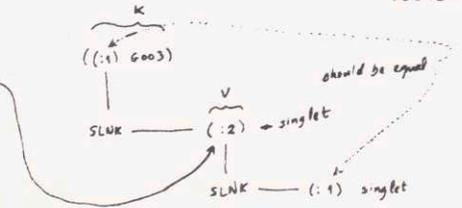 K
((:1) GOO3)
should be equal
V
SLNK (:2) singlet
SLNK (:1) singlet